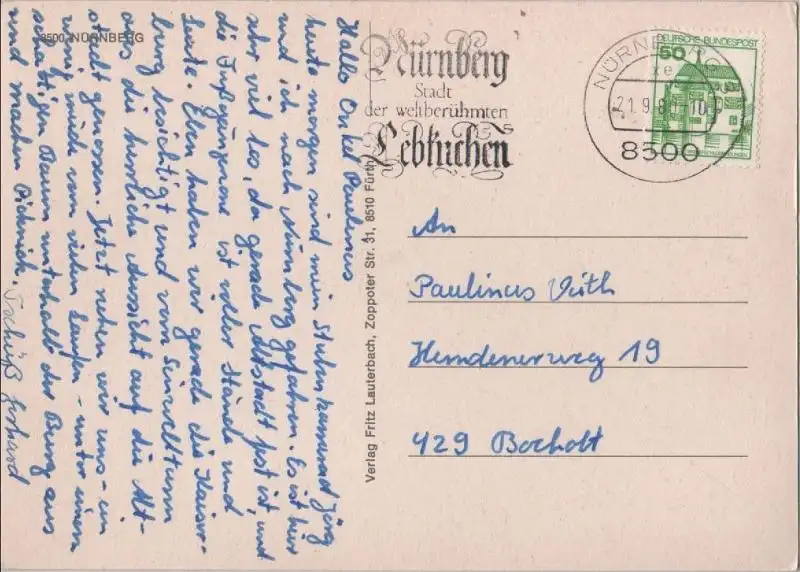 8500 NÜRNBERG
Hallo Onkel Paulinus
heute morgen sind mein Stubenkammerad Jörg
und ich nach Nürnberg gefahren. Es ist hier
sehr viel los, da gerade Altstadtfest ist, und
die Fußgängerzone ist voller Stände und
Leute. Eben haben wir gerade die Kaiser-
burg besichtigt und vom Sinwellturm
aus die herrliche Aussicht auf die Alt-
stadt genossen. Jetzt ruhen wir uns - ein
wenig müde vom vielen Laufen - unter einem
schattigen Baum unterhalb der Burg aus
und machen Picknick. Tschüß Gerhard
Verlag Fritz Lauterbach, Zoppoter Str. 31, 8510 Fürth
Nürnberg
Stadt
der weltberühmten
Lebkuchen
NÜRNBERG
21.9.80
8500
DEUTSCHE BUNDESPOST
50
An
Paulinus Vüth
Hemdenerweg 19
429 Bocholt